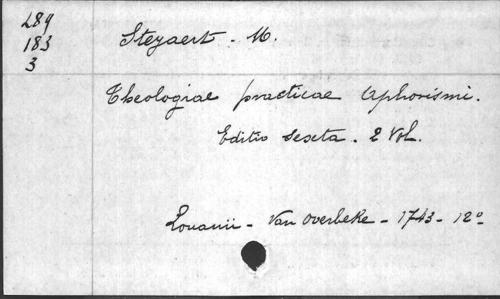 289
183
3
Steyaert - M.
Theologiae practicae Aphorismi.
Editio sexta. 2 Vol.
Lovanii - Van Overbeke - 1743 - 12º